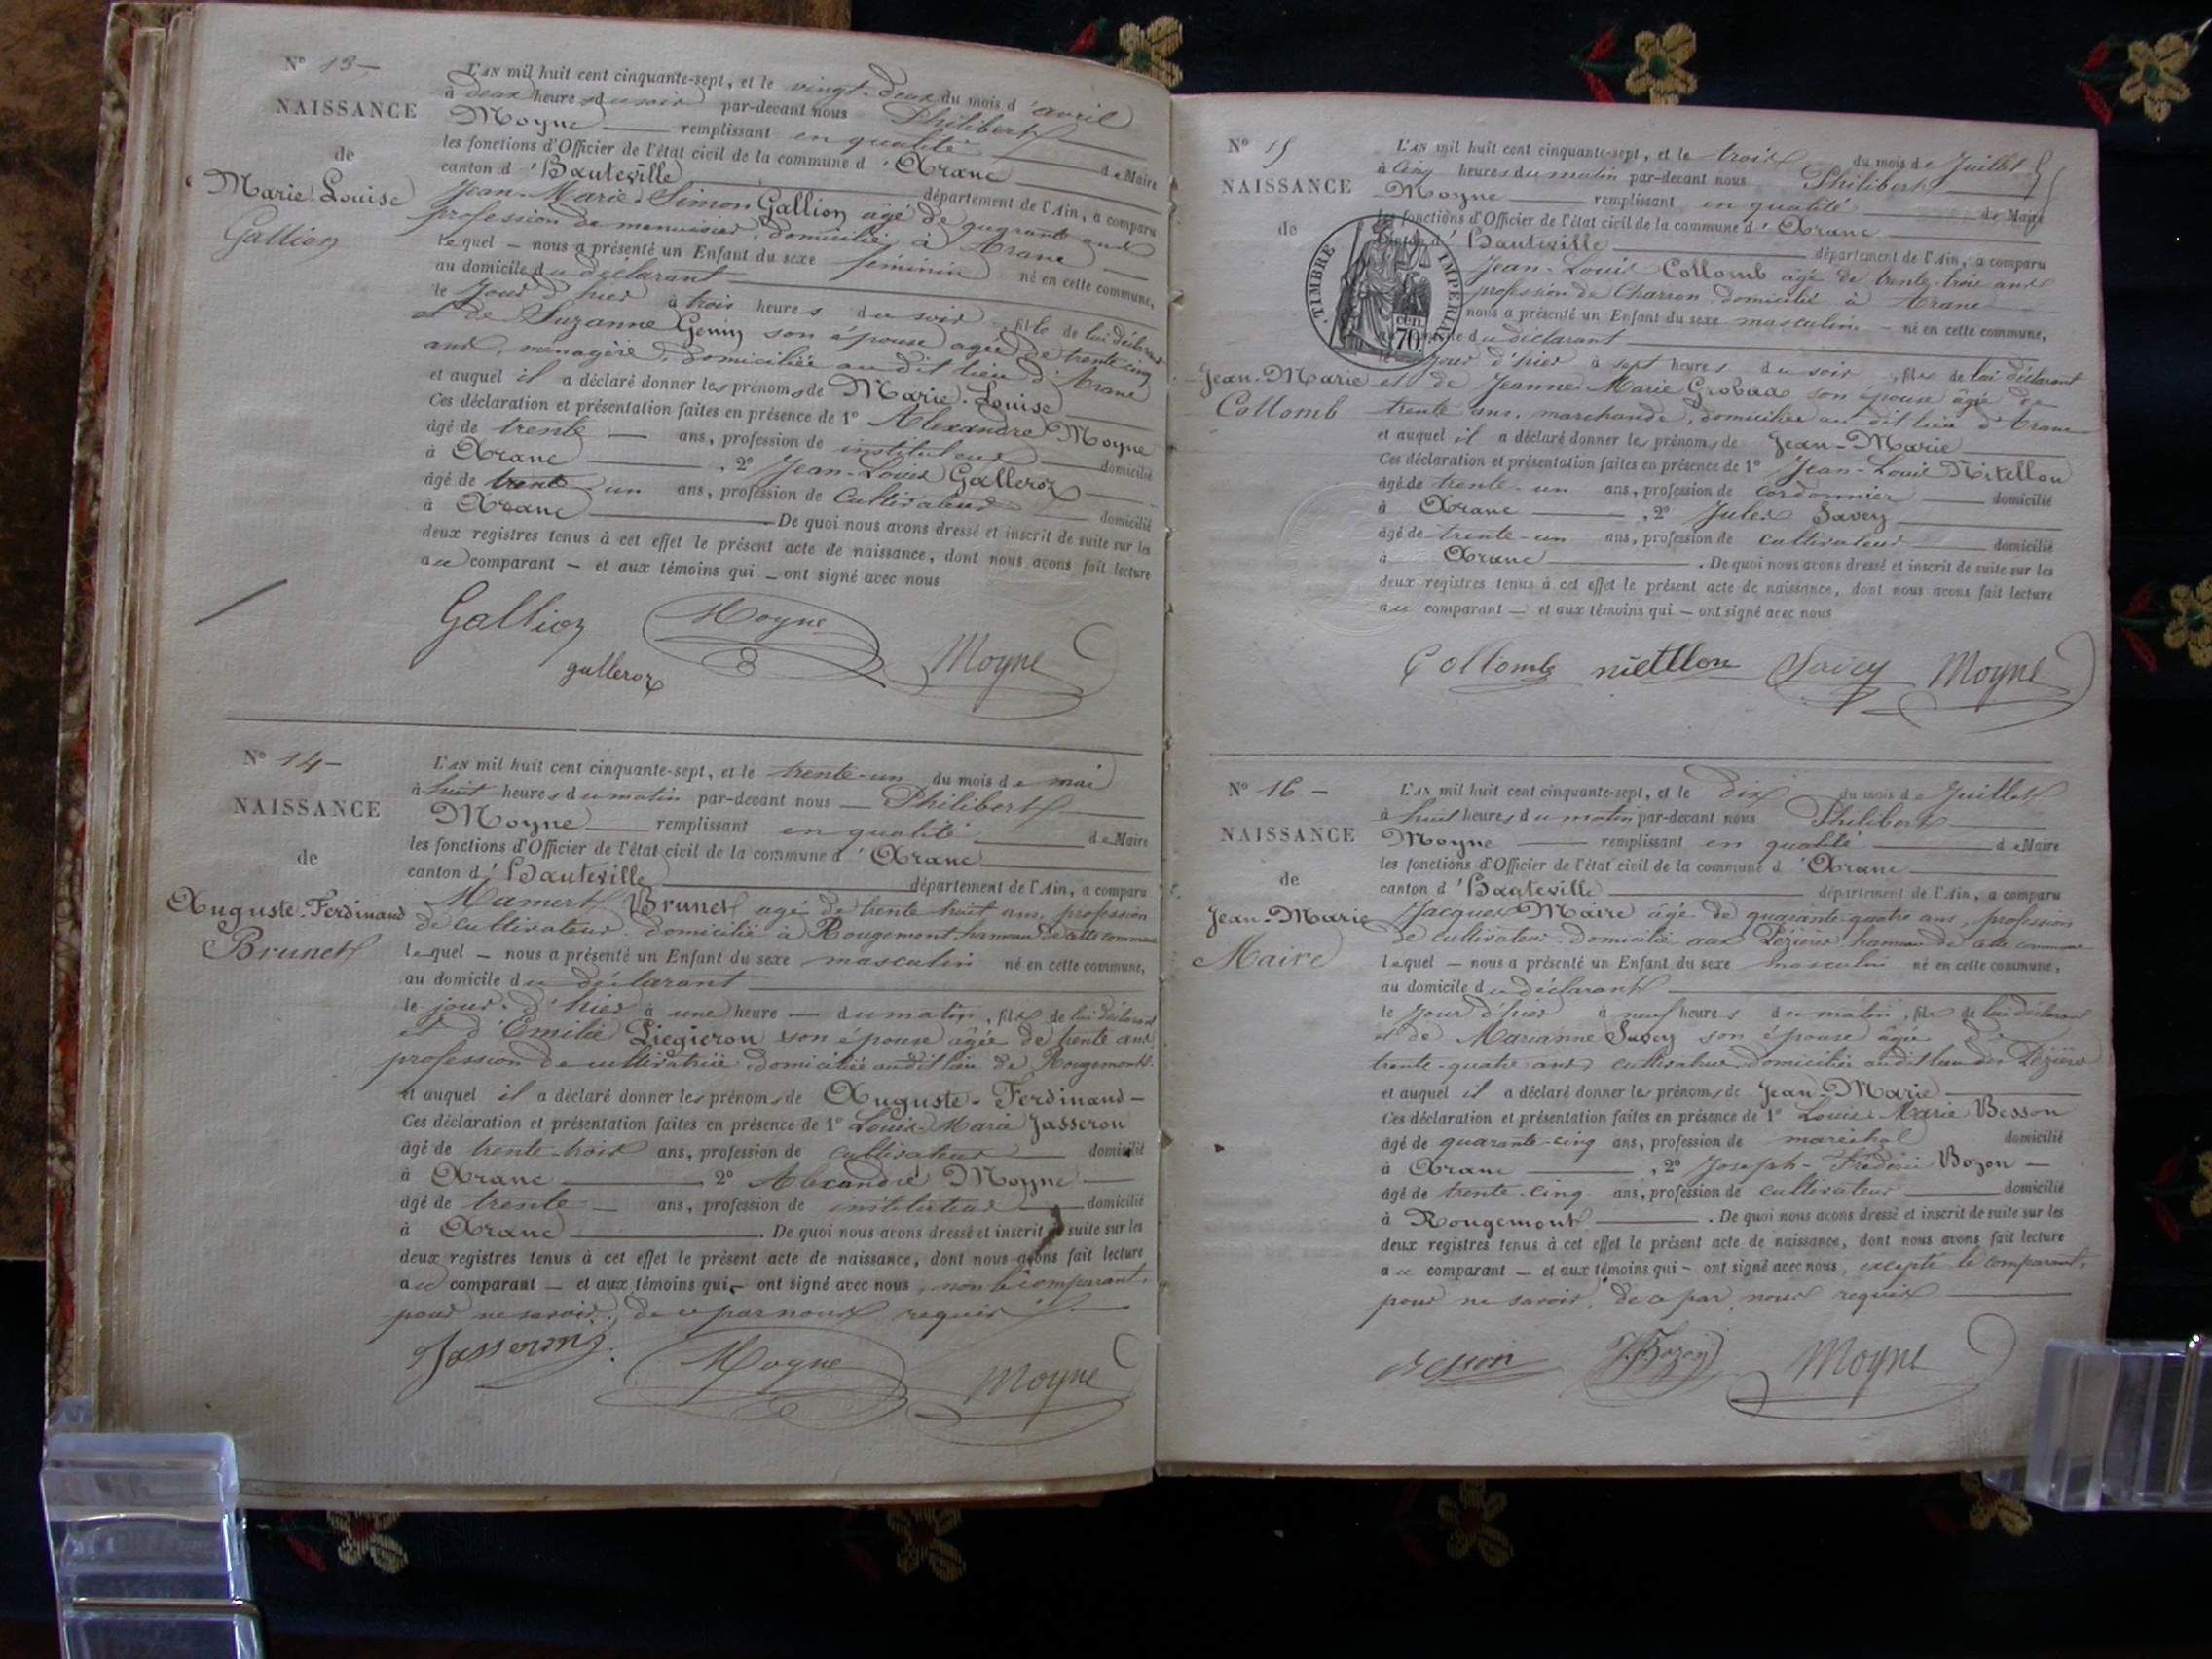 N° 13 —
NAISSANCE
de
Marie-Louise
Gallioz
L'AN mil huit cent cinquante-sept, et le vingt-deux du mois d'avril
à deux heures du soir par-devant nous Philibert
Moyne — remplissant en qualité de Maire
les fonctions d'Officier de l'état civil de la commune d'Aranc
canton d'Hauteville département de l'Ain, a comparu
Jean-Marie-Simon Gallioz âgé de quarante ans
profession de menuisier, domicilié à Aranc
lequel — nous a présenté un Enfant du sexe féminin né en cette commune,
au domicile du déclarant
le jour d'hier à trois heures du soir, fille de lui déclarant
et de Suzanne son épouse agée de trente cinq
ans, ménagère, domiciliée au dit lieu d'Aranc
et auquel il a déclaré donner les prénoms de Marie-Louise
Ces déclaration et présentation faites en présence de 1° Alexandre Moyne
âgé de trente — ans, profession de instituteur domicilié
à Aranc , 2° Jean-Louis Galleroz
âgé de trente-un ans, profession de Cultivateur domicilié
à Aranc . De quoi nous avons dressé et inscrit de suite sur les
deux registres tenus à cet effet le présent acte de naissance, dont nous avons fait lecture
au comparant — et aux témoins qui — ont signé avec nous
Gallioz Moyne
galleroz Moyne
N° 14 —
NAISSANCE
de
Auguste-Ferdinand
Brunet
L'AN mil huit cent cinquante-sept, et le trente-un du mois de mai
à huit heures du matin par-devant nous — Philibert
Moyne — remplissant en qualité de Maire
les fonctions d'Officier de l'état civil de la commune d'Aranc
canton d'Hauteville département de l'Ain, a comparu
Mamert Brunet agé de trente huit ans, profession
de cultivateur domicilié à Rougemont hameau de cette commune
lequel — nous a présenté un Enfant du sexe masculin né en cette commune,
au domicile du déclarant
le jour d'hier à une heure — du matin, fils de lui déclarant
et d'Emilie Liegieron son épouse âgée de trente ans
profession de cultivatrice domiciliée au dit lieu de Rougemont
et auquel il a déclaré donner les prénoms de Auguste-Ferdinand —
Ces déclaration et présentation faites en présence de 1° Louis-Marie Jasseron
âgé de trente-trois ans, profession de cultivateur domicilié
à Aranc 2° Alexandre Moyne
âgé de trente — ans, profession de instituteur domicilié
à Aranc . De quoi nous avons dressé et inscrit de suite sur les
deux registres tenus à cet effet le présent acte de naissance, dont nous avons fait lecture
au comparant — et aux témoins qui — ont signé avec nous, non le comparant,
pour ne savoir, de ce par nous requis
Jasseron Moyne Moyne
N° 15
NAISSANCE
de
Jean-Marie
Collomb
L'AN mil huit cent cinquante-sept, et le trois du mois de Juillet
à cinq heures du matin par-devant nous Philibert
Moyne — remplissant en qualité de Maire
les fonctions d'Officier de l'état civil de la commune d'Aranc
canton d'Hauteville département de l'Ain, a comparu
TIMBRE IMPERIAL
70 cen.
Jean-Louis Collomb âgé de trente-trois ans
profession de Charron domicilié à Aranc
nous a présenté un Enfant du sexe masculin — né en cette commune,
du déclarant
le jour d'hier à sept heures du soir, fils de lui déclarant
et de Jeanne-Marie Grobas son épouse âgée de
trente ans, marchande, domiciliée au dit lieu d'Aranc
et auquel il a déclaré donner les prénoms de Jean-Marie
Ces déclaration et présentation faites en présence de 1° Jean-Louis Nitellon
âgé de trente-un ans, profession de cordonnier domicilié
à Aranc , 2° Jules Savey
âgé de trente-un ans, profession de cultivateur domicilié
à Aranc . De quoi nous avons dressé et inscrit de suite sur les
deux registres tenus à cet effet le présent acte de naissance, dont nous avons fait lecture
au comparant — et aux témoins qui — ont signé avec nous
Collomb Savey Moyne
N° 16 —
NAISSANCE
de
Jean-Marie
Maire
L'AN mil huit cent cinquante-sept, et le dix du mois de Juillet
à huit heures du matin par-devant nous Philibert
Moyne — remplissant en qualité de Maire
les fonctions d'Officier de l'état civil de la commune d'Aranc
canton d'Hauteville département de l'Ain, a comparu
Jacques Maire âgé de quarante-quatre ans, profession
de cultivateur domicilié aux Pézières hameau de cette commune
lequel — nous a présenté un Enfant du sexe masculin né en cette commune,
au domicile du déclarant
le jour d'hier à neuf heures du matin, fils de lui déclarant
et de Marianne Savey son épouse âgée de
trente-quatre ans cultivatrice domiciliée au dit lieu des Pézières
et auquel il a déclaré donner les prénoms de Jean-Marie
Ces déclaration et présentation faites en présence de 1° Louis-Marie Besson
âgé de quarante-cinq ans, profession de maréchal domicilié
à Aranc , 2° Joseph-Frédéric Bozon —
âgé de trente-cinq ans, profession de cultivateur domicilié
à Rougemont . De quoi nous avons dressé et inscrit de suite sur les
deux registres tenus à cet effet le présent acte de naissance, dont nous avons fait lecture
au comparant — et aux témoins qui — ont signé avec nous, excepté le comparant,
pour ne savoir, de ce par nous requis
Besson Bozon Moyne